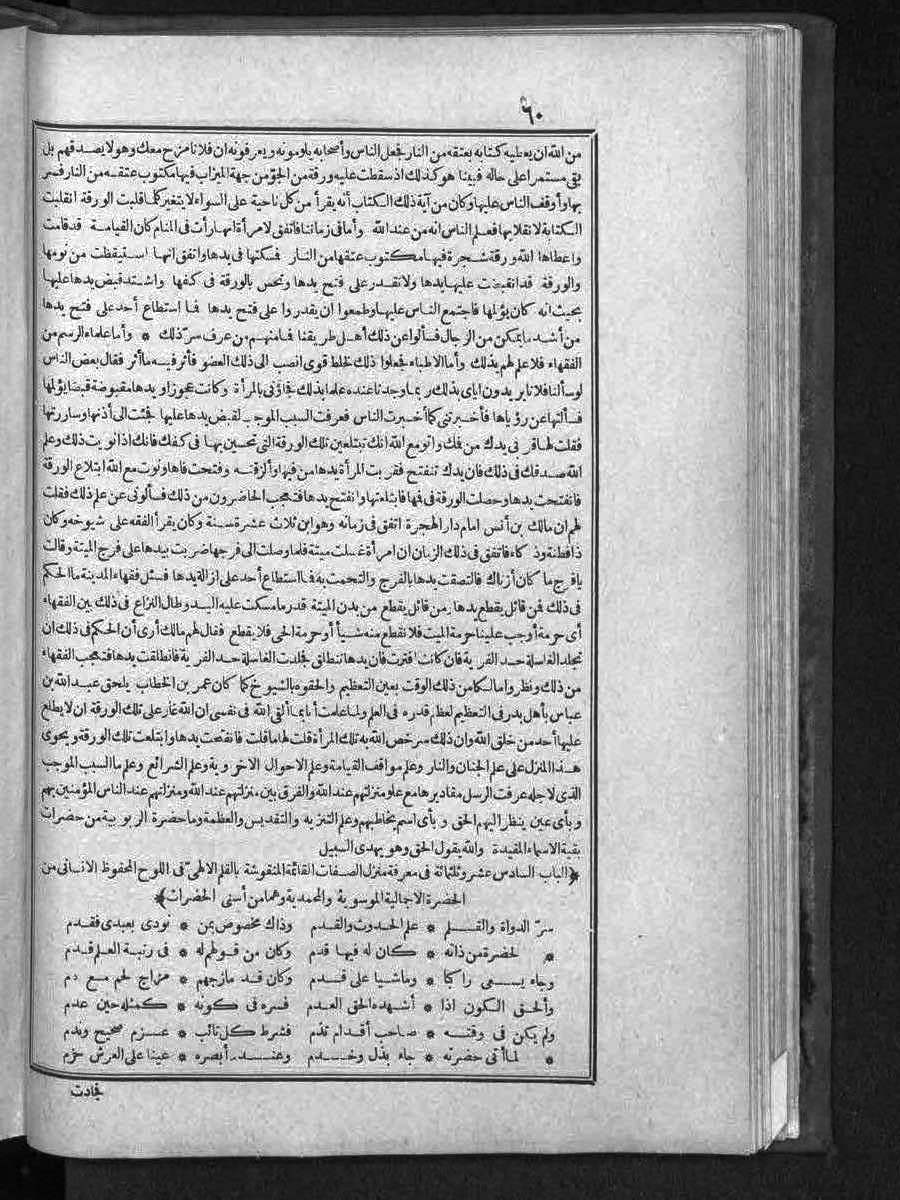 ٦٠
من الله ان يعطيه كتابه بعتقه من النار فجعل الناس وأصحابه يلومونه ويعرفونه ان فلانا مزح معك وهو لا يصدقهم بل
بقي مستمرا على حاله فبينا هو كذلك اذ سقطت عليه ورقة من الجو من جهة الميزاب فيها مكتوب عتقه من النار فسر
بها وأوقف الناس عليها وكان من آية ذلك الكتاب أنه يقرأ من كل ناحية على السواء لا يتغير كلما قلبت الورقة انقلبت
الكتابة لانقلابها فعلم الناس انه من عند الله وأما في زماننا فاتفق لامرأة انها رأت في المنام كان القيامة قد قامت
واعطاها الله ورقة شجرة فيها مكتوب عتقها من النار فسكتها في يدها واتفق انها استيقظت من نومها
والورقة قد انقبضت عليها يدها ولا تقدر على فتح يدها وتحس بالورقة في كفها واشتد قبض يدها عليها
بحيث انه كان يؤلمها فاجتمع الناس عليها وطمعوا ان يقدروا على فتح يدها فما استطاع أحد على فتح يدها
من أشد ما يمكن من الرجال فسألوا عن ذلك أهل طريقنا فما منهم من عرف سر ذلك * وأما علماء الرسم من
الفقهاء فلا علم لهم بذلك وأما الاطباء فجعلوا ذلك لخلط قوي انصب الى ذلك العضو فأثر فيه ما أثر فقال بعض الناس
لو سألنا فلانا يريدون اياي بذلك ربما وجدنا عنده علما بذلك فجاؤني بالمرأة وكانت عجوزا ويدها مقبوضة قبضا يؤلمها
فسألتها عن رؤياها فأخبرتني كما أخبرت الناس فعرفت السبب الموجب لقبض يدها عليها فجئت الى أذنها وساررتها
فقلت لها قربي يدك من فمك وانو مع الله انك تبتلعين تلك الورقة التي تحسين بها في كفك فانك اذا نويت ذلك وعلم
الله صدقك في ذلك فان يدك تنفتح فقربت المرأة يدها من فيها وألزقته وفتحت فاها ونوت مع الله ابتلاع الورقة
فانفتحت يدها وحصلت الورقة في فيها فابتلعتها وانفتح يدها فتعجب الحاضرون من ذلك فسألوني عن علم ذلك فقلت
لهم ان مالك بن أنس امام دار الهجرة اتفق في زمانه وهو ابن ثلاث عشرة سنة وكان يقرأ الفقه على شيوخه وكان
ذا فطنة وذكاء فاتفق في ذلك الزمان ان امرأة غسلت ميتة فلما وصلت الى فرجها ضربت بيدها على فرج الميتة وقالت
يا فرج ما كان أزناك فالتصقت يدها بالفرج والتحمت به فما استطاع أحد على ازالة يدها فسئل فقهاء المدينة ما الحكم
في ذلك فمن قائل يقطع يدها ومن قائل يقطع من بدن الميتة قدر ما مسكت عليه اليد وطال النزاع في ذلك بين الفقهاء
أي حرمة أوجب علينا حرمة الميت فلا نقطع منه شيأ أو حرمة الحي فلا يقطع فقال لهم مالك أرى أن الحكم في ذلك ان
تجلد الغاسلة حد الفرية فان كانت افترت فان يدها تنطلق فجلدت الغاسلة حد الفرية فانطلقت يدها فتعجب الفقهاء
من ذلك ونظروا مالكا من ذلك الوقت بعين التعظيم وألحقوه بالشيوخ كما كان عمر بن الخطاب يلحق عبد الله بن
عباس بأهل بدر في التعظيم لعظم قدره في العلم ولما علمت أنا بما ألقى الله في نفسي ان الله غار على تلك الورقة ان لا يطلع
عليها أحد من خلق الله وان ذلك سر خص الله به تلك المرأة قلت لها ما قلت فانفتحت يدها وابتلعت تلك الورقة ويحوي
هذا المنزل على علم الجنان والنار وعلم مواقف القيامة وعلم الاحوال الاخروية وعلم الشرائع وعلم ما السبب الموجب
الذي لاجله عرفت الرسل مقاديرها مع علو منزلتهم عند الله والفرق بين منزلتهم عند الله ومنزلتهم عند الناس المؤمنين بهم
وبأي عين ينظر اليهم الحق وبأي اسم يخاطبهم وعلم التنزيه والتقديس والعظمة وما حضرة الربوبية من حضرات
بقية الاسماء المقيدة والله يقول الحق وهو يهدي السبيل
﴿الباب السادس عشر وثلثمائة في معرفة منزل الصفات القائمة المنقوشة بالقلم الالهي في اللوح المحفوظ الانساني من
الحضرة الاجمالية الموسوية والمحمدية وهما من أسنى الحضرات﴾
سر الدواة والقلم * علم الحدوث والقدم وذاك مخصوص بمن * نودي بعبدي فقدم
* لحضرة من ذاته * كان له فيها قدم وكان من قولهم له * في رتبة العلم قدم
وجاء يسعى راكبا * وماشيا على قدم وكان قد مازجهم * مزاج لحم مع دم
وألحق الكون اذا * أشهده الحق العدم فسره في كونه * كمثله حين عدم
ولم يكن في وقته * صاحب أقدام تذم فشرط كل تائب * عزم صحيح وندم
* لما أتى حضرته * جاء بذل وخدم وعندما أبصره * عينا على العرش حزم
فجادت